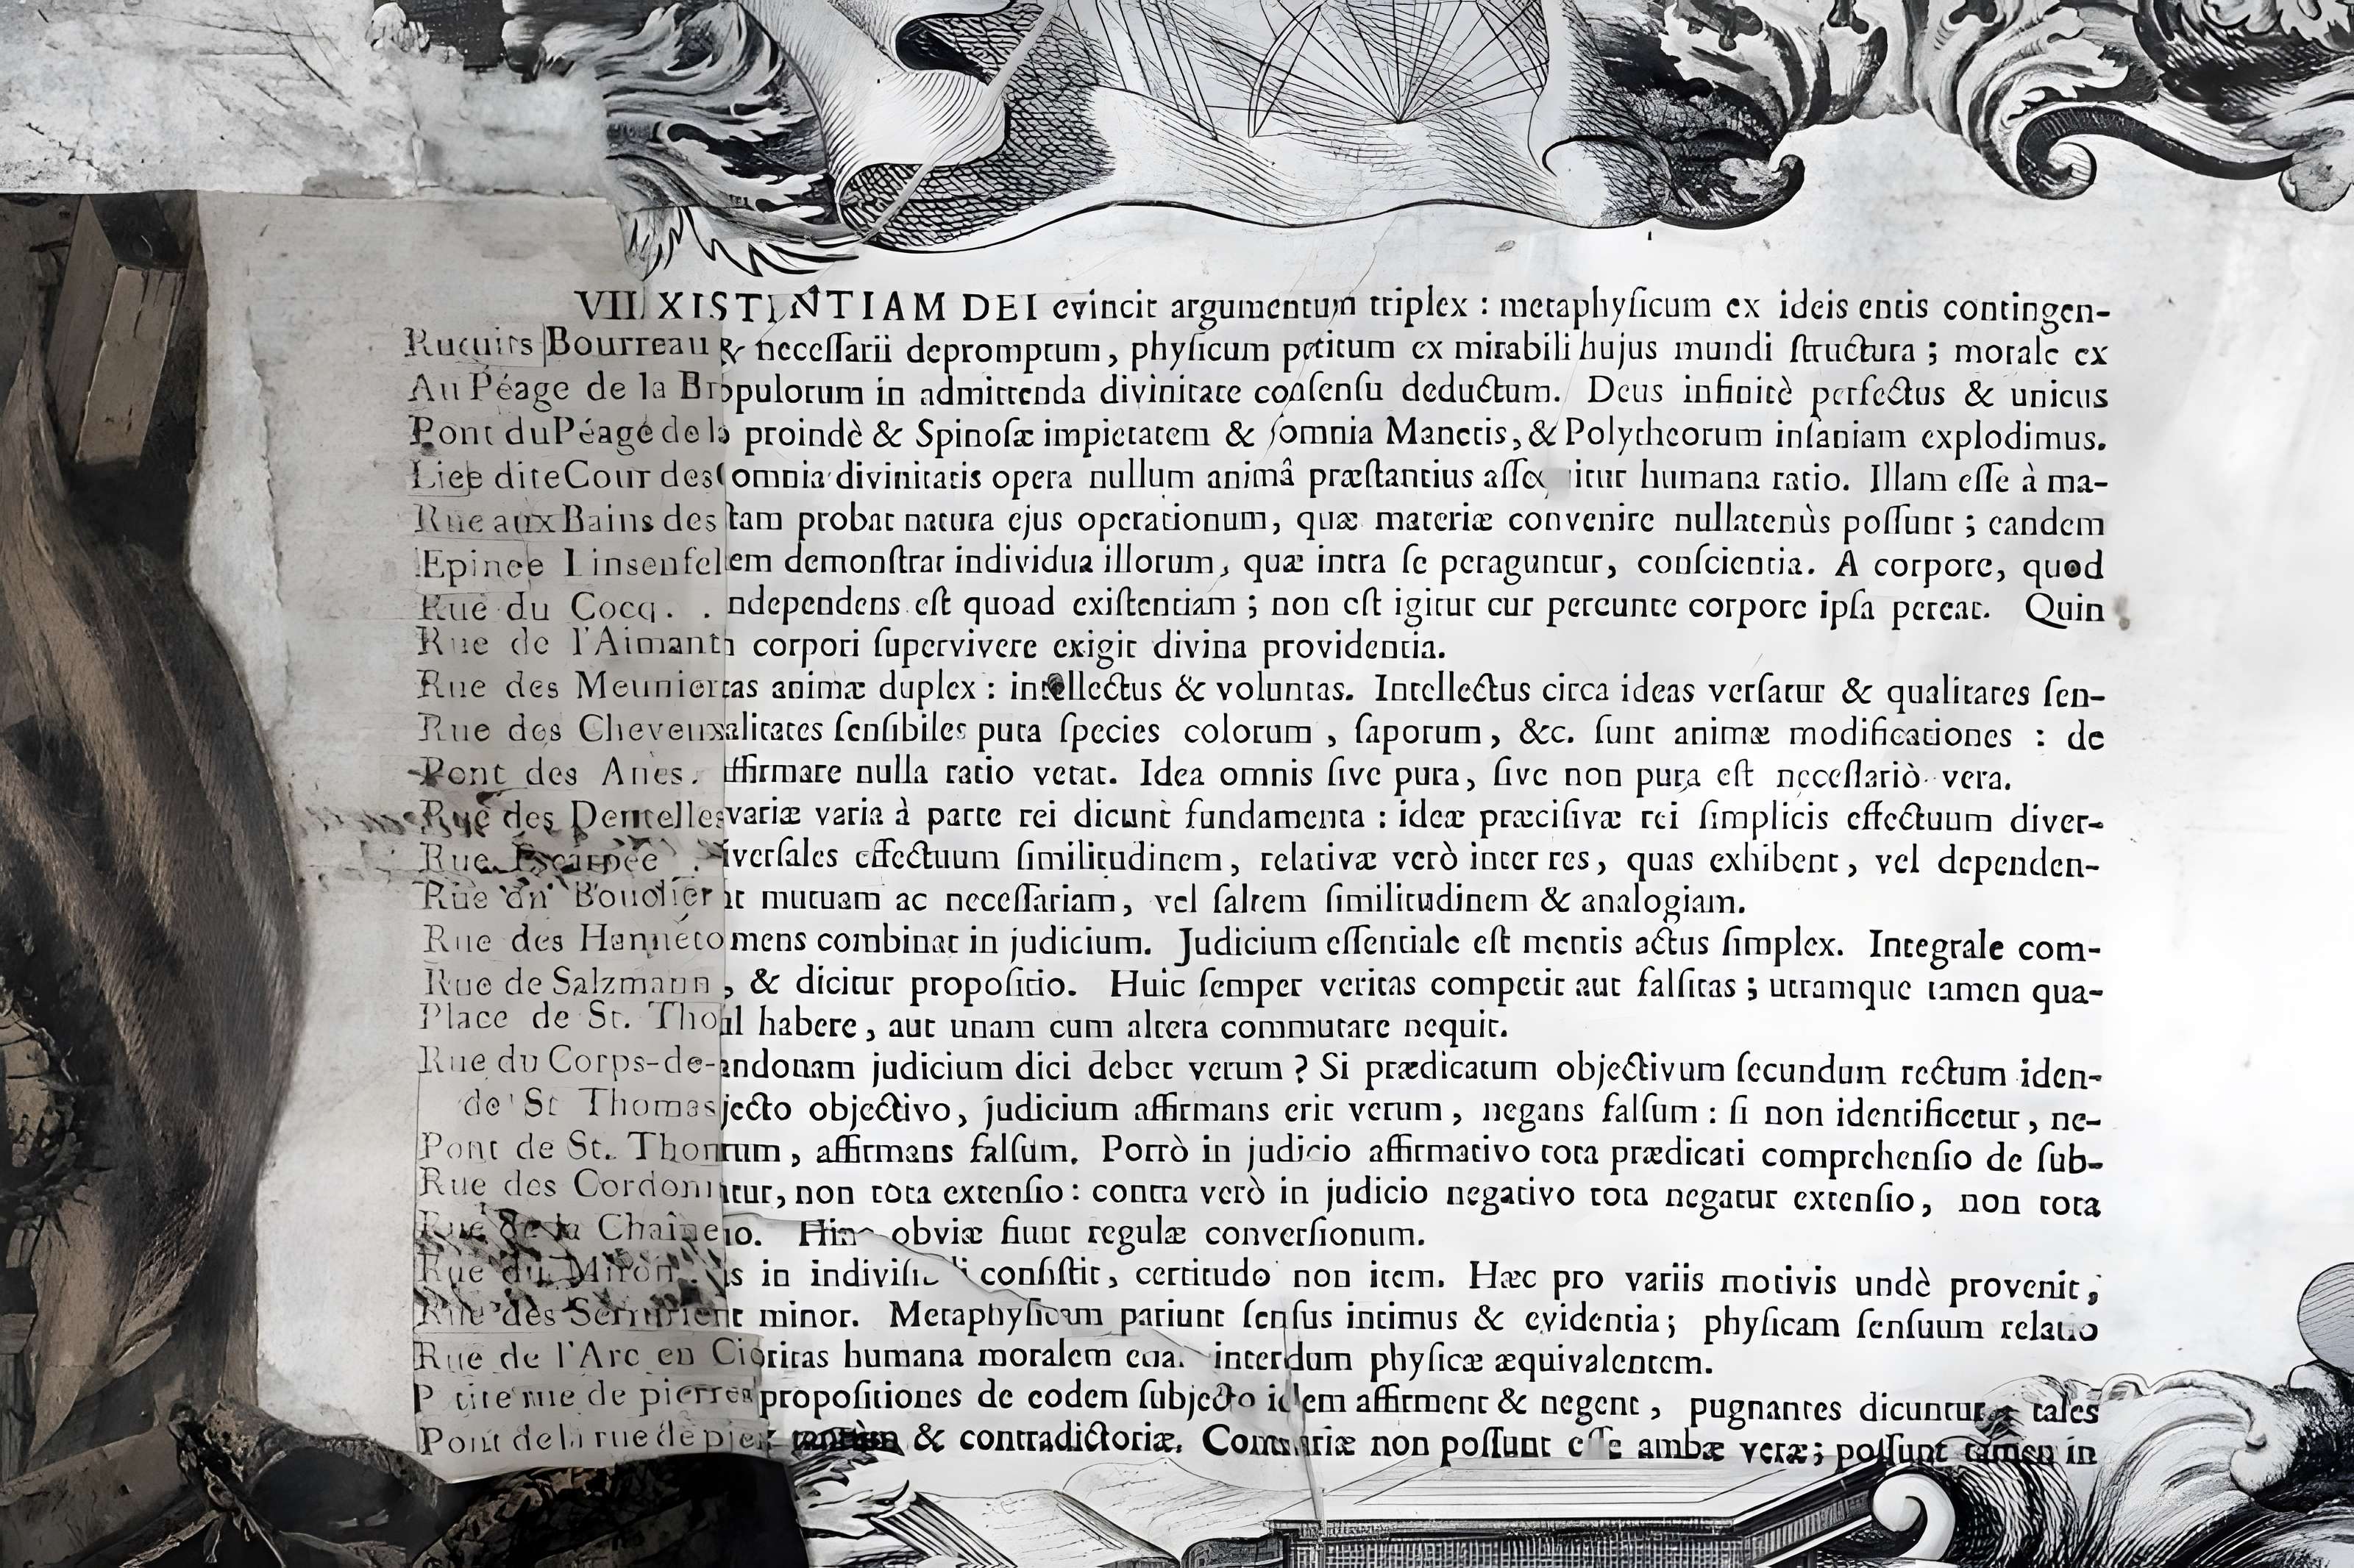 VII XISTENTIAM DEI evincit argumentum triplex : metaphyſicum ex ideis entis contingen-
Bourreau & neceſſarii depromptum, phyſicum petitum ex mirabili hujus mundi ſtructura ; morale ex
Au Péage de la Br opulorum in admittenda divinitate conſenſu deductum. Deus infinitè perfectus & unicus
Pont du Péage de la proindè & Spinoſæ impietatem & ſomnia Manetis, & Polytheorum inſaniam explodimus.
dite Cour des omnia divinitatis opera nullum animâ præſtantius humana ratio. Illam eſſe à ma-
Rue aux Bains des tam probat natura ejus operationum, quæ materiæ convenire nullatenùs poſſunt ; eandem
Epinee Linsenfel em demonſtrat individua illorum, quæ intra ſe peraguntur, conſcientia. A corpore, quod
Rue du Cocq. . ndependens eſt quoad exiſtentiam ; non eſt igitur cur pereunte corpore ipſa pereat. Quin
Rue de l'Aimant corpori ſupervivere exigit divina providentia.
Rue des Meunier tas animæ duplex : intellectus & voluntas. Intellectus circa ideas verſatur & qualitates ſen-
Rue des Cheveux alitates ſenſibiles puta ſpecies colorum , ſaporum, &c. ſunt animæ modificationes : de
Pont des Anes. ffirmare nulla ratio vetat. Idea omnis ſive pura, ſive non pura eſt neceſſariò vera.
Rue des Dentelles variæ varia à parte rei dicunt fundamenta : ideæ præciſivæ rei ſimplicis effectuum diver-
Rue Escarpée . iverſales effectuum ſimilitudinem, relativæ verò inter res, quas exhibent, vel dependen-
Rue du Bouclier nt mutuam ac neceſſariam, vel ſaltem ſimilitudinem & analogiam.
Rue des Hanneto mens combinat in judicium. Judicium eſſentiale eſt mentis actus ſimplex. Integrale com-
Rue de Salzmann , & dicitur propoſitio. Huic ſemper veritas competit aut falſitas ; utramque tamen qua-
Place de St. Tho ul habere, aut unam cum altera commutare nequit.
Rue du Corps-de- andonam judicium dici debet verum ? Si prædicatum objectivum ſecundum rectum iden-
de St Thomas jecto objectivo, judicium affirmans erit verum, negans falſum : ſi non identificetur, ne-
Pont de St. Thom rum, affirmans falſum. Porrò in judicio affirmativo tota prædicati comprehenſio de ſub-
Rue des Cordonn tur, non tota extenſio : contra verò in judicio negativo tota negatur extenſio, non tota
Rue de la Chaîne io. obviæ fiunt regulæ converſionum.
Rue du Miron . is in conſiſtit, certitudo non item. Hæc pro variis motivis undè provenit,
Rue des Serrurie nt minor. Metaphyſicam pariunt ſenſus intimus & evidentia ; phyſicam ſenſuum relatio
Rue de l'Arc en Ci oritas humana moralem interdum phyſicæ æquivalentem.
P tite rue de pierres propoſitiones de eodem ſubjecto idem affirment & negent, pugnantes dicuntur tales
Pont de la rue de pier & contradictoriæ. Contrariæ non poſſunt eſſe ambæ veræ ; poſſunt tamen in